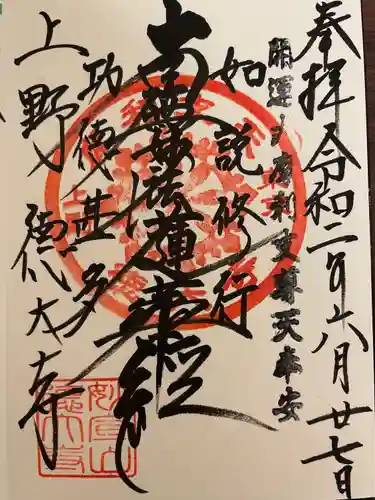 奉拝令和二年六月廿七日
開運摩利支尊天奉安
如説修行
南無妙法蓮華経
功徳甚多
上野徳大寺